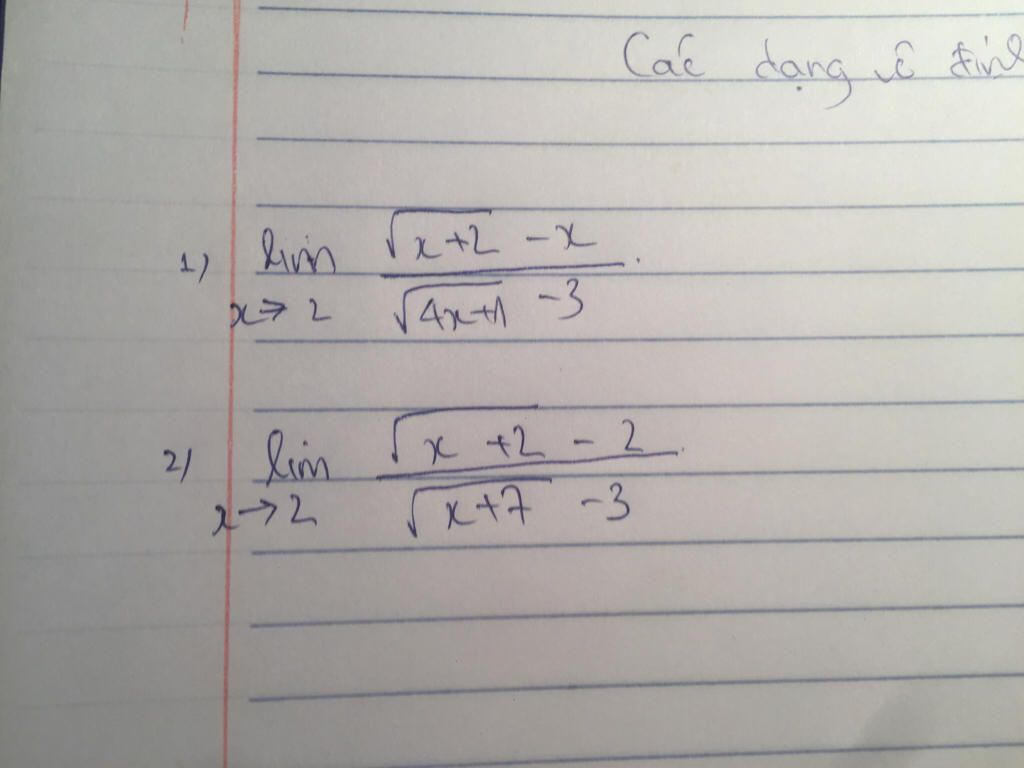 Các dạng vô định
1) lim x→2 (√(x+2) - x)/(√(4x+1) - 3).
2) lim x→2 (√(x+2) - 2)/(√(x+7) - 3).